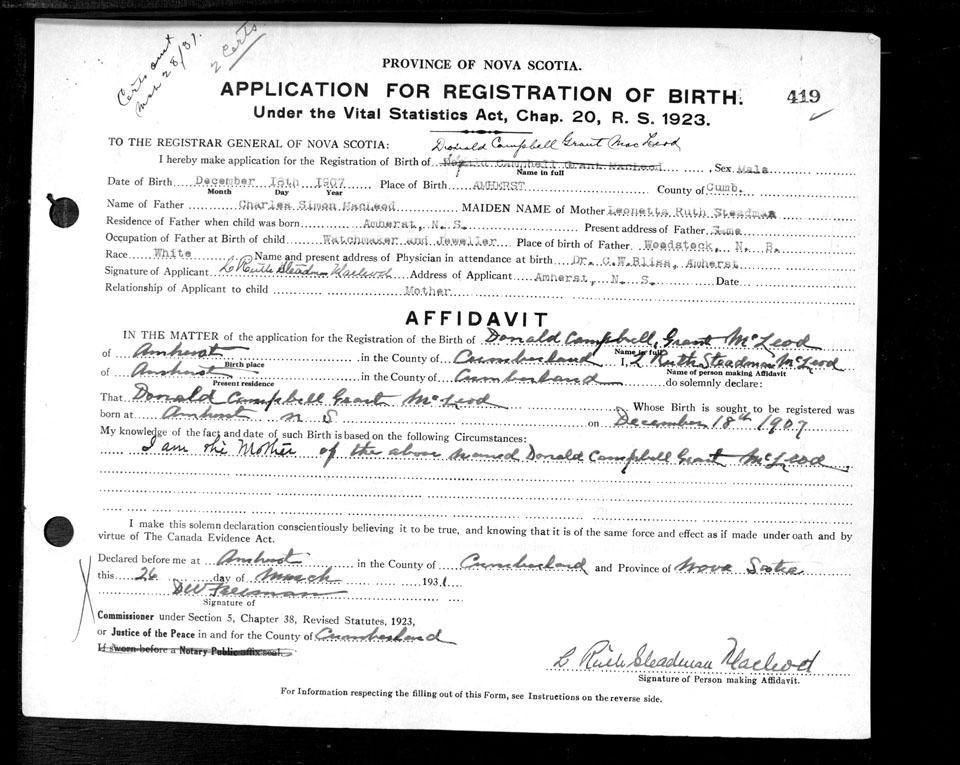 Certs out
Mar 28/31.
2 Certs
PROVINCE OF NOVA SCOTIA.
APPLICATION FOR REGISTRATION OF BIRTH.
419
Under the Vital Statistics Act, Chap. 20, R. S. 1923.
TO THE REGISTRAR GENERAL OF NOVA SCOTIA: Donald Campbell Grant MacLeod
I hereby make application for the Registration of Birth of Campbell Grant MacLeod, Sex Male
Name in full
Date of Birth December 18th 1907 Place of Birth AMHERST County of Cumb.
Month Day Year
Name of Father Charles Simon MacLeod MAIDEN NAME of Mother Leonetta Ruth Steadman
Residence of Father when child was born Amherst, N. S. Present address of Father Same
Occupation of Father at Birth of child Watchmaker and Jeweller Place of birth of Father Woodstock, N. B.
Race White Name and present address of Physician in attendance at birth Dr. C.W.Bliss, Amherst
Signature of Applicant L Ruth Steadman Macleod Address of Applicant Amherst, N. S. Date
Relationship of Applicant to child Mother
AFFIDAVIT
IN THE MATTER of the application for the Registration of the Birth of Donald Campbell, Grant McLeod
Name in full
of Amherst in the County of Cumberland I, L Ruth Steadman McLeod
Birth place Name of person making Affidavit
of Amherst in the County of Cumberland do solemnly declare:
Present residence
That Donald Campbell Grant McLeod Whose Birth is sought to be registered was
born at Amherst N S on December 18th 1907
My knowledge of the fact and date of such Birth is based on the following Circumstances:
I am the Mother of the above named Donald Campbell Grant McLeod
I make this solemn declaration conscientiously believing it to be true, and knowing that it is of the same force and effect as if made under oath and by
virtue of The Canada Evidence Act.
Declared before me at Amherst in the County of Cumberland and Province of Nova Scotia
this 26 day of March 1931
Signature of
Commissioner under Section 5, Chapter 38, Revised Statutes, 1923,
or Justice of the Peace in and for the County of Cumberland
If sworn before a Notary Public affix seal.
L Ruth Steadman Macleod
Signature of Person making Affidavit.
For Information respecting the filling out of this Form, see Instructions on the reverse side.